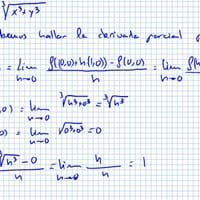 ∛(x³+y³)
hallar la derivada parcial
= lim_{h→0} (f((0,0)+h(1,0)) - f(0,0))/h = lim_{h→0} f(h
,0) = lim_{h→0} ∛(h³+0³) = ∛h³
0) = lim_{h→0} √(0³+0³) = 0
∛h³ - 0 / h = lim_{h→0} h/h = 1